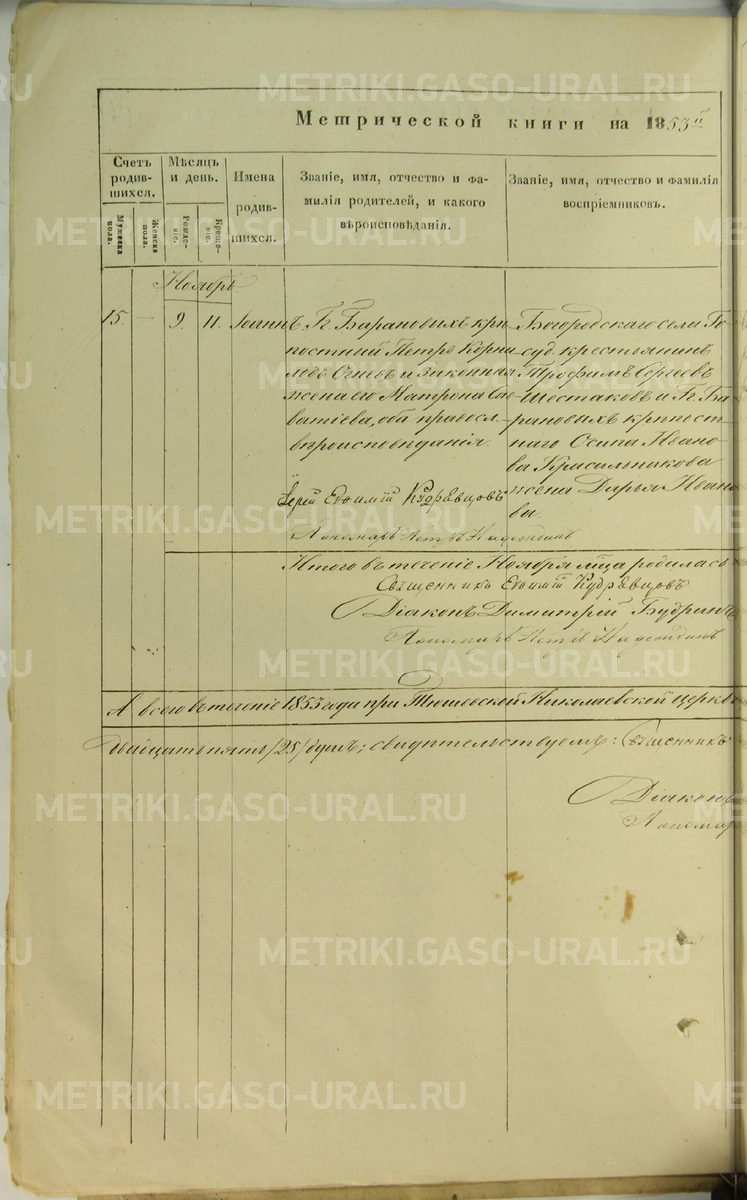 Метрической книги на 1853й
Счетъ родившихся.
Мужеска пола.
Женска пола.
Мѣсяцъ и день.
Рожденіе.
Крещеніе.
Имена родившихся.
Званіе, имя, отчество и фамилія родителей, и какого вѣроисповѣданія.
Званіе, имя, отчество и фамилія воспріемниковъ.
Ноябрь
15. — 9. 11. Іоаннъ
Г. Барановыхъ крѣ
постный Петръ Корни
ловъ Огневъ и законная
жена его Матрона Са
ватіева, оба правосл.
вѣроисповѣданія.
Іерей Евѳимій Кудрявцовъ
Пономарь Петръ Надеждинъ
Богородскаго села Го
суд. крестьянинъ
Трофимъ Сергеевъ
Шестаковъ и Г. Ба
рановыхъ крѣпост
наго Осипа Ивано
ва Красильникова
жена Дарья Ивано
ва.
Итого въ теченіе Ноября мѣца родилась
Священникъ Евѳимій Кудрявцовъ
Діаконъ Димитрій Будринъ
Пономарь Петръ Надеждинъ
А всего въ теченіе 1853 года при Тюшевской Николаевской церкв
двадцать пять /25/ душъ; свидѣтельствуемъ: Священникъ
Діаконъ
Пономарь
METRIKI.GASO-URAL.RU